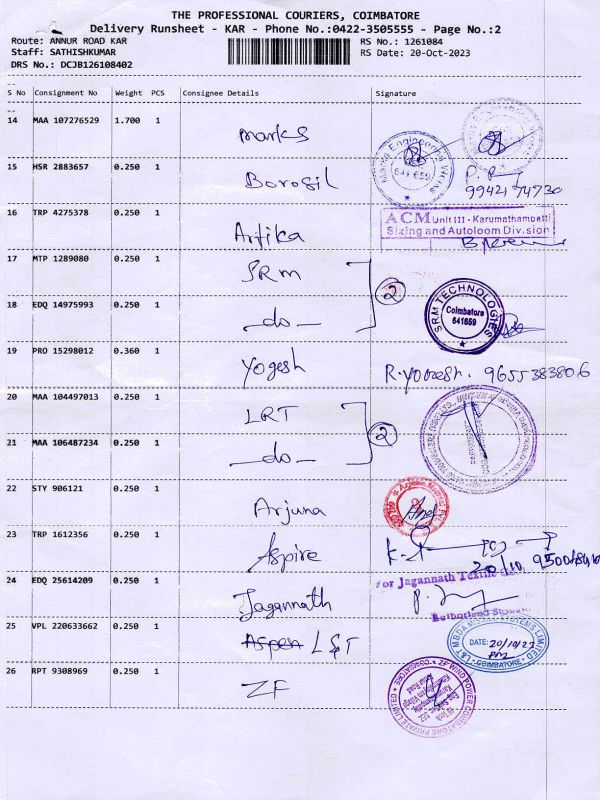 THE PROFESSIONAL COURIERS, COIMBATORE
Delivery Runsheet - KAR - Phone No.:0422-3505555 - Page No.:2
Route: ANNUR ROAD KAR
Staff: SATHISHKUMAR
DRS No.: DCJB126108402
RS No.: 1261084
RS Date: 20-Oct-2023
S No Consignment No Weight PCS Consignee Details Signature
14 MAA 107276529 1.700 1 Marks
15 HSR 2883657 0.250 1 Borosil
641 659
16 TRP 4275378 0.250 1 Artika
ACM Unit III - Karumathampatti
Sizing and Autoloom Division
17 MTP 1289080 0.250 1 SRM 2
18 EDQ 14975993 0.250 1 -do-
SRM TECHNOLOGIES
Coimbatore
641659
19 PRO 15298012 0.360 1 Yogesh R. Yogesh. 9655383806
20 MAA 104497013 0.250 1 LRT 2
21 MAA 106487234 0.250 1 -do-
22 STY 906121 0.250 1 Arjuna
23 TRP 1612356 0.250 1 Aspire
20/10,
24 EDQ 25614209 0.250 1 Jagannath
For Jagannath Textile
Authorised
25 VPL 220633662 0.250 1 Aspen L&T
L&T MBDA SYSTEMS LIMITED
DATE: 20/10/23
COIMBATORE
26 RPT 9308969 0.250 1 ZF
ZF WIND POWER COIMBATORE PRIVATE LIMITED